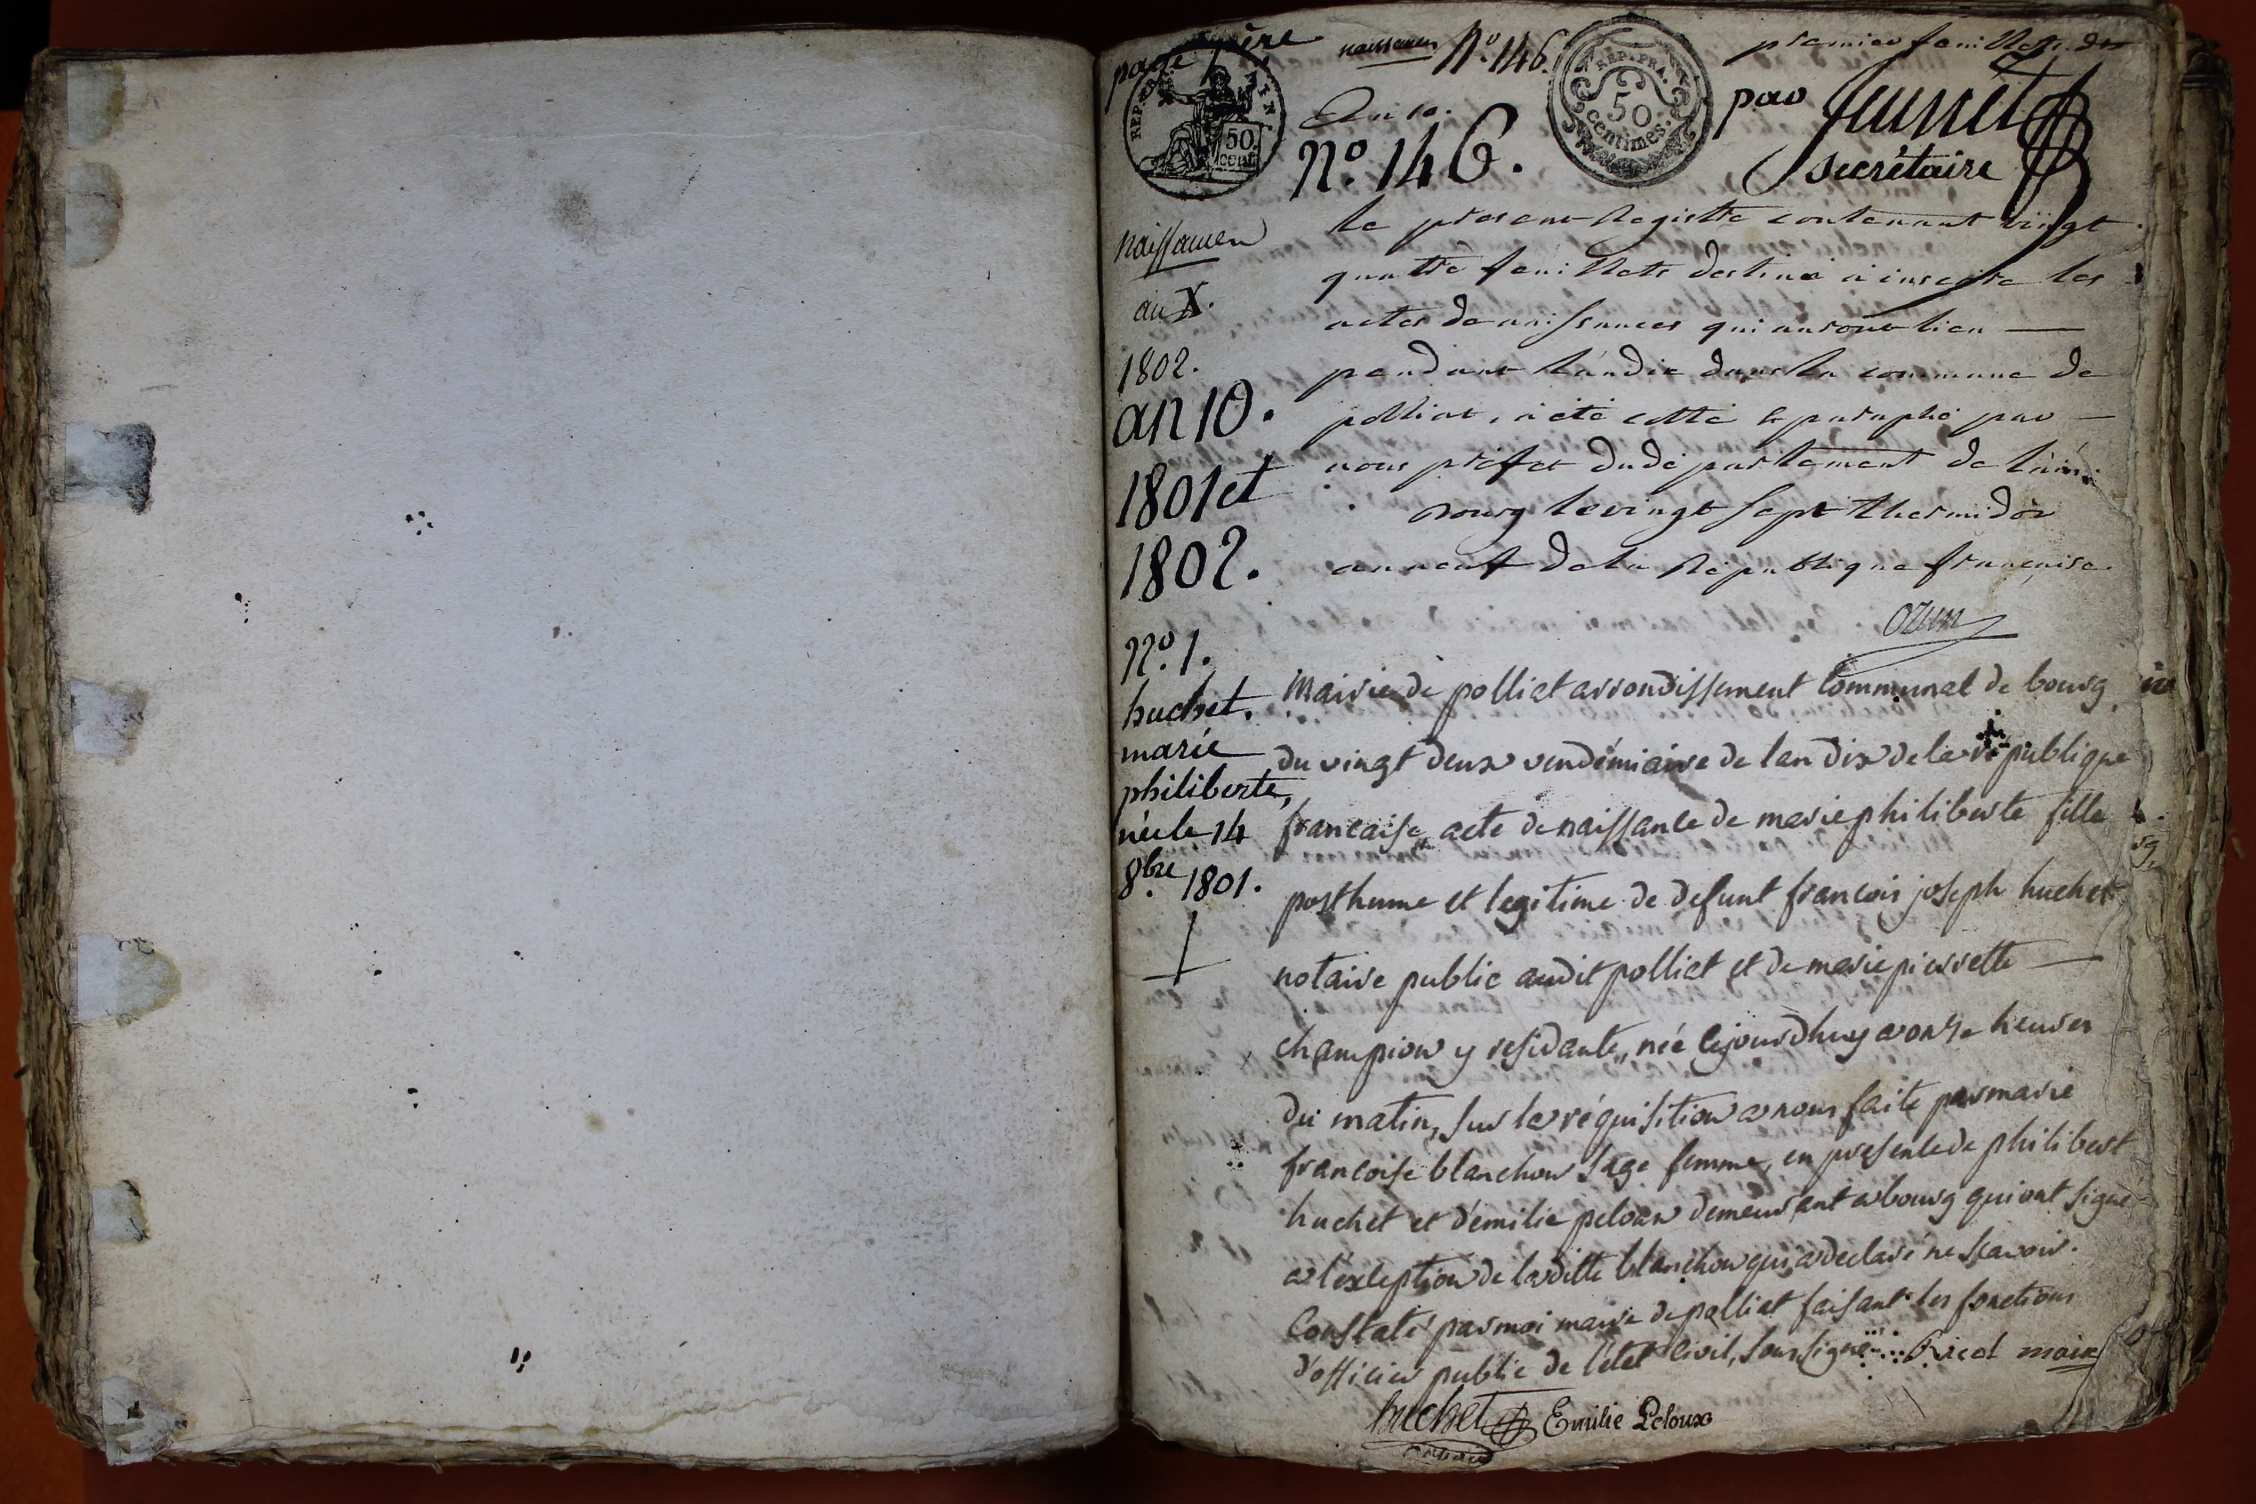 page 1ère
naissances N.o 146.
premier feuillet. dx
REP. FRA.
50
cent.
REP. FRA.
50
centimes.
An 10.
N.o 146.
par Junet
secrétaire
Naissances
an X.
1802.
an 10.
1801 et
1802.
le present Registre contenant vingt
quatre feuillets destiné à inscrire les
actes de naissances qui auront lieu
pendant l'an dix dans la commune de
polliat, a été cotté & paraphé par
nous préfet du département de l'ain.
Bourg le vingt sept thermidor
an neuf de la République française.
Ozun
N.o 1.
huchet.
marie
philiberte,
née le 14
8.bre 1801.
Mairie de polliat arrondissement Communal de bourg
du vingt deux vendémiaire de lan dix de la république
francaise, acte de naissance de marie philiberte fille
posthume et legitime de defunt francois joseph huchet
notaire public audit polliat et de marie pierrette
champion y residante, née cejourdhuy a onze heures
du matin, sur la réquisition a nous faite par marie
francoise blanchon sage femme, en presence de philibert
huchet et d'emilie peloux demeurant a bourg qui ont signé
a l'exception de la ditte blanchon qui a declaré ne scavoir.
Constaté par moi maire de polliat faisant les fonctions
d'officier public de l'état civil, soussigné Ricol maire
huchet Emilie Peloux